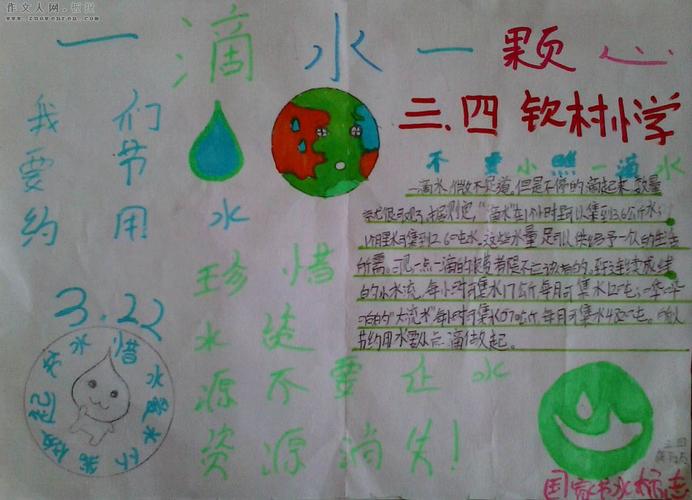 作文人网.板报
www.zuowenren.com
一滴水一颗心
三.四 钦村小学
我们
要节
约用水
3.22
珍惜
水
源不要让水
资源消失!
不要小 一滴水
一滴水,微不足道,但是不停的滴起来,数量
"滴水"在1小时里可以集到3.6公斤水;
1个月里可集到2.6吨水.这些水量,足可以供给一个人的生活
所需.
的小水流,每小时可集水17公斤,每月可集水12吨;
的"大流水",每小时可集水670公斤,每月可集水482吨.所以
节约用水要从点滴做起.
节水 惜水 做起
国家节水标志